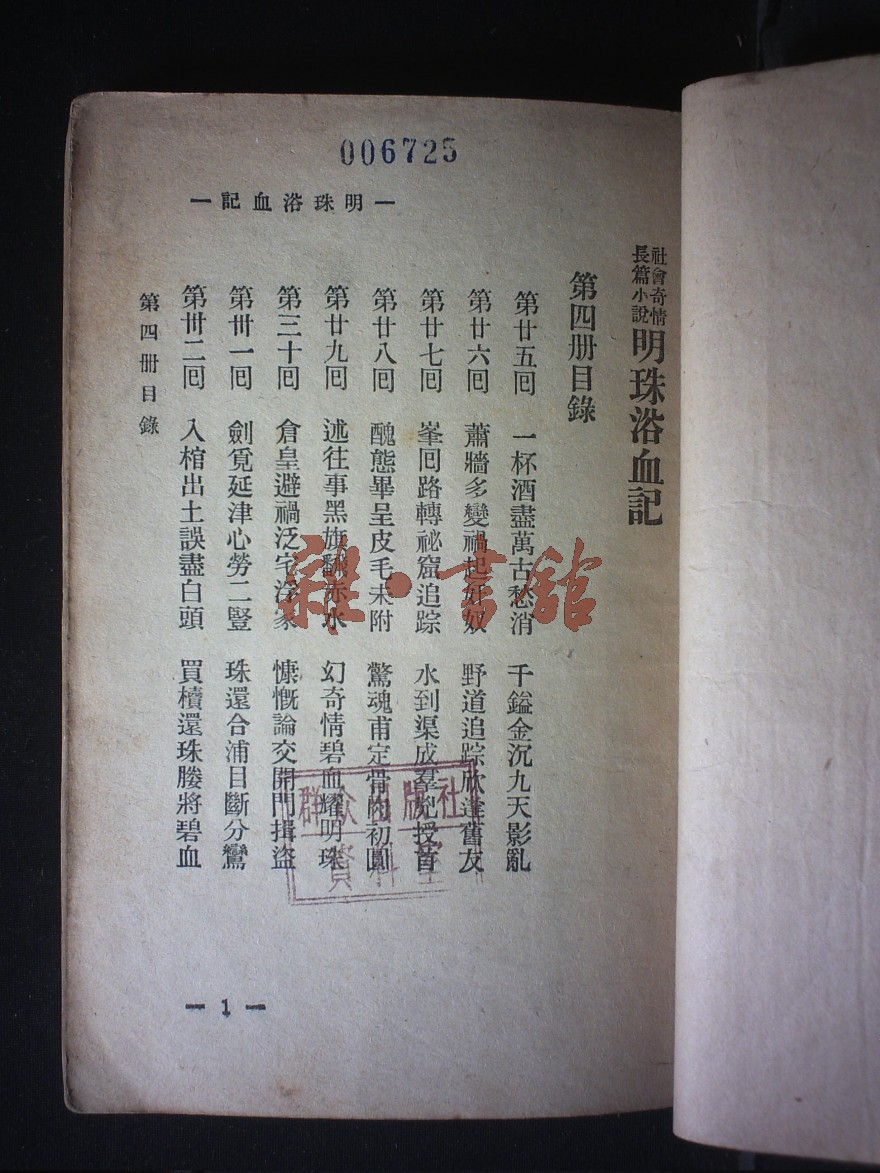 006725
—明珠浴血記—
社會奇情
長篇小說
明珠浴血記
第四册目錄
第廿五囘 一杯酒盡萬古愁消 千鎰金沉九天影亂
第廿六囘 蕭牆多變禍起奸奴 野道追踪欣逢舊友
第廿七囘 峯囘路轉祕窟追踪 水到渠成羣兇授首
第廿八囘 醜態畢呈皮毛未附 驚魂甫定骨肉初圓
第廿九囘 述往事黑旗翻赤水 幻奇情碧血耀明珠
第三十囘 倉皇避禍泛宅浮家 慷慨論交開門揖盜
第卅一囘 劍覓延津心勞二豎 珠還合浦目斷分鸞
第卅二囘 入棺出土誤盡白頭 買櫝還珠賸將碧血
第四册目錄
— 1 —
雜·書館
群众出版社
資料室